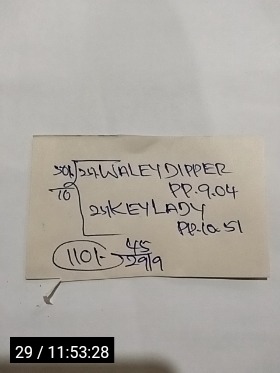 50/- 24 WALEY DIPPER
10 PP.9.04
24 KEYLADY
PP.10.51
110/- 45
29/9
29 / 11:53:28